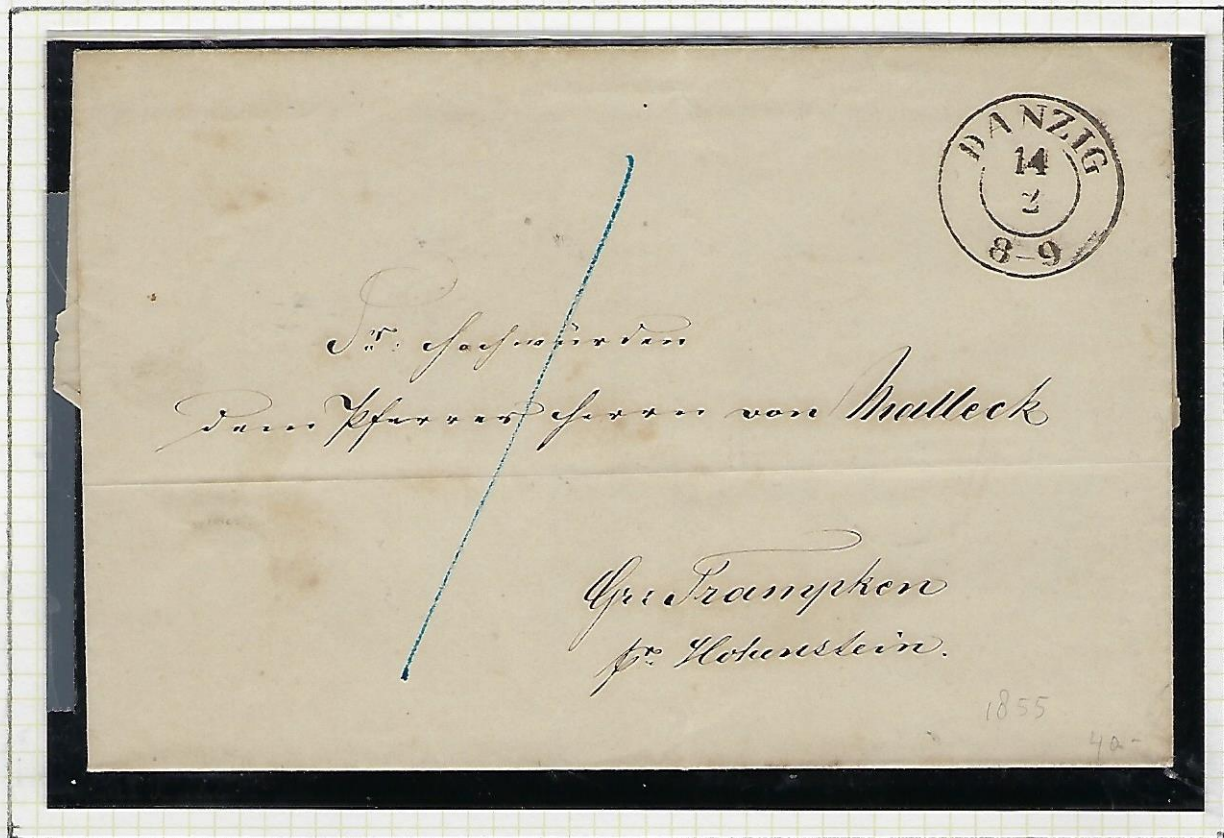 DANZIG
14
2
8-9
Sr. Hochwürden
dem Pfarrer Herrn von Malleck
Gr. Trampken
pr. Hohenstein.
1855
40-